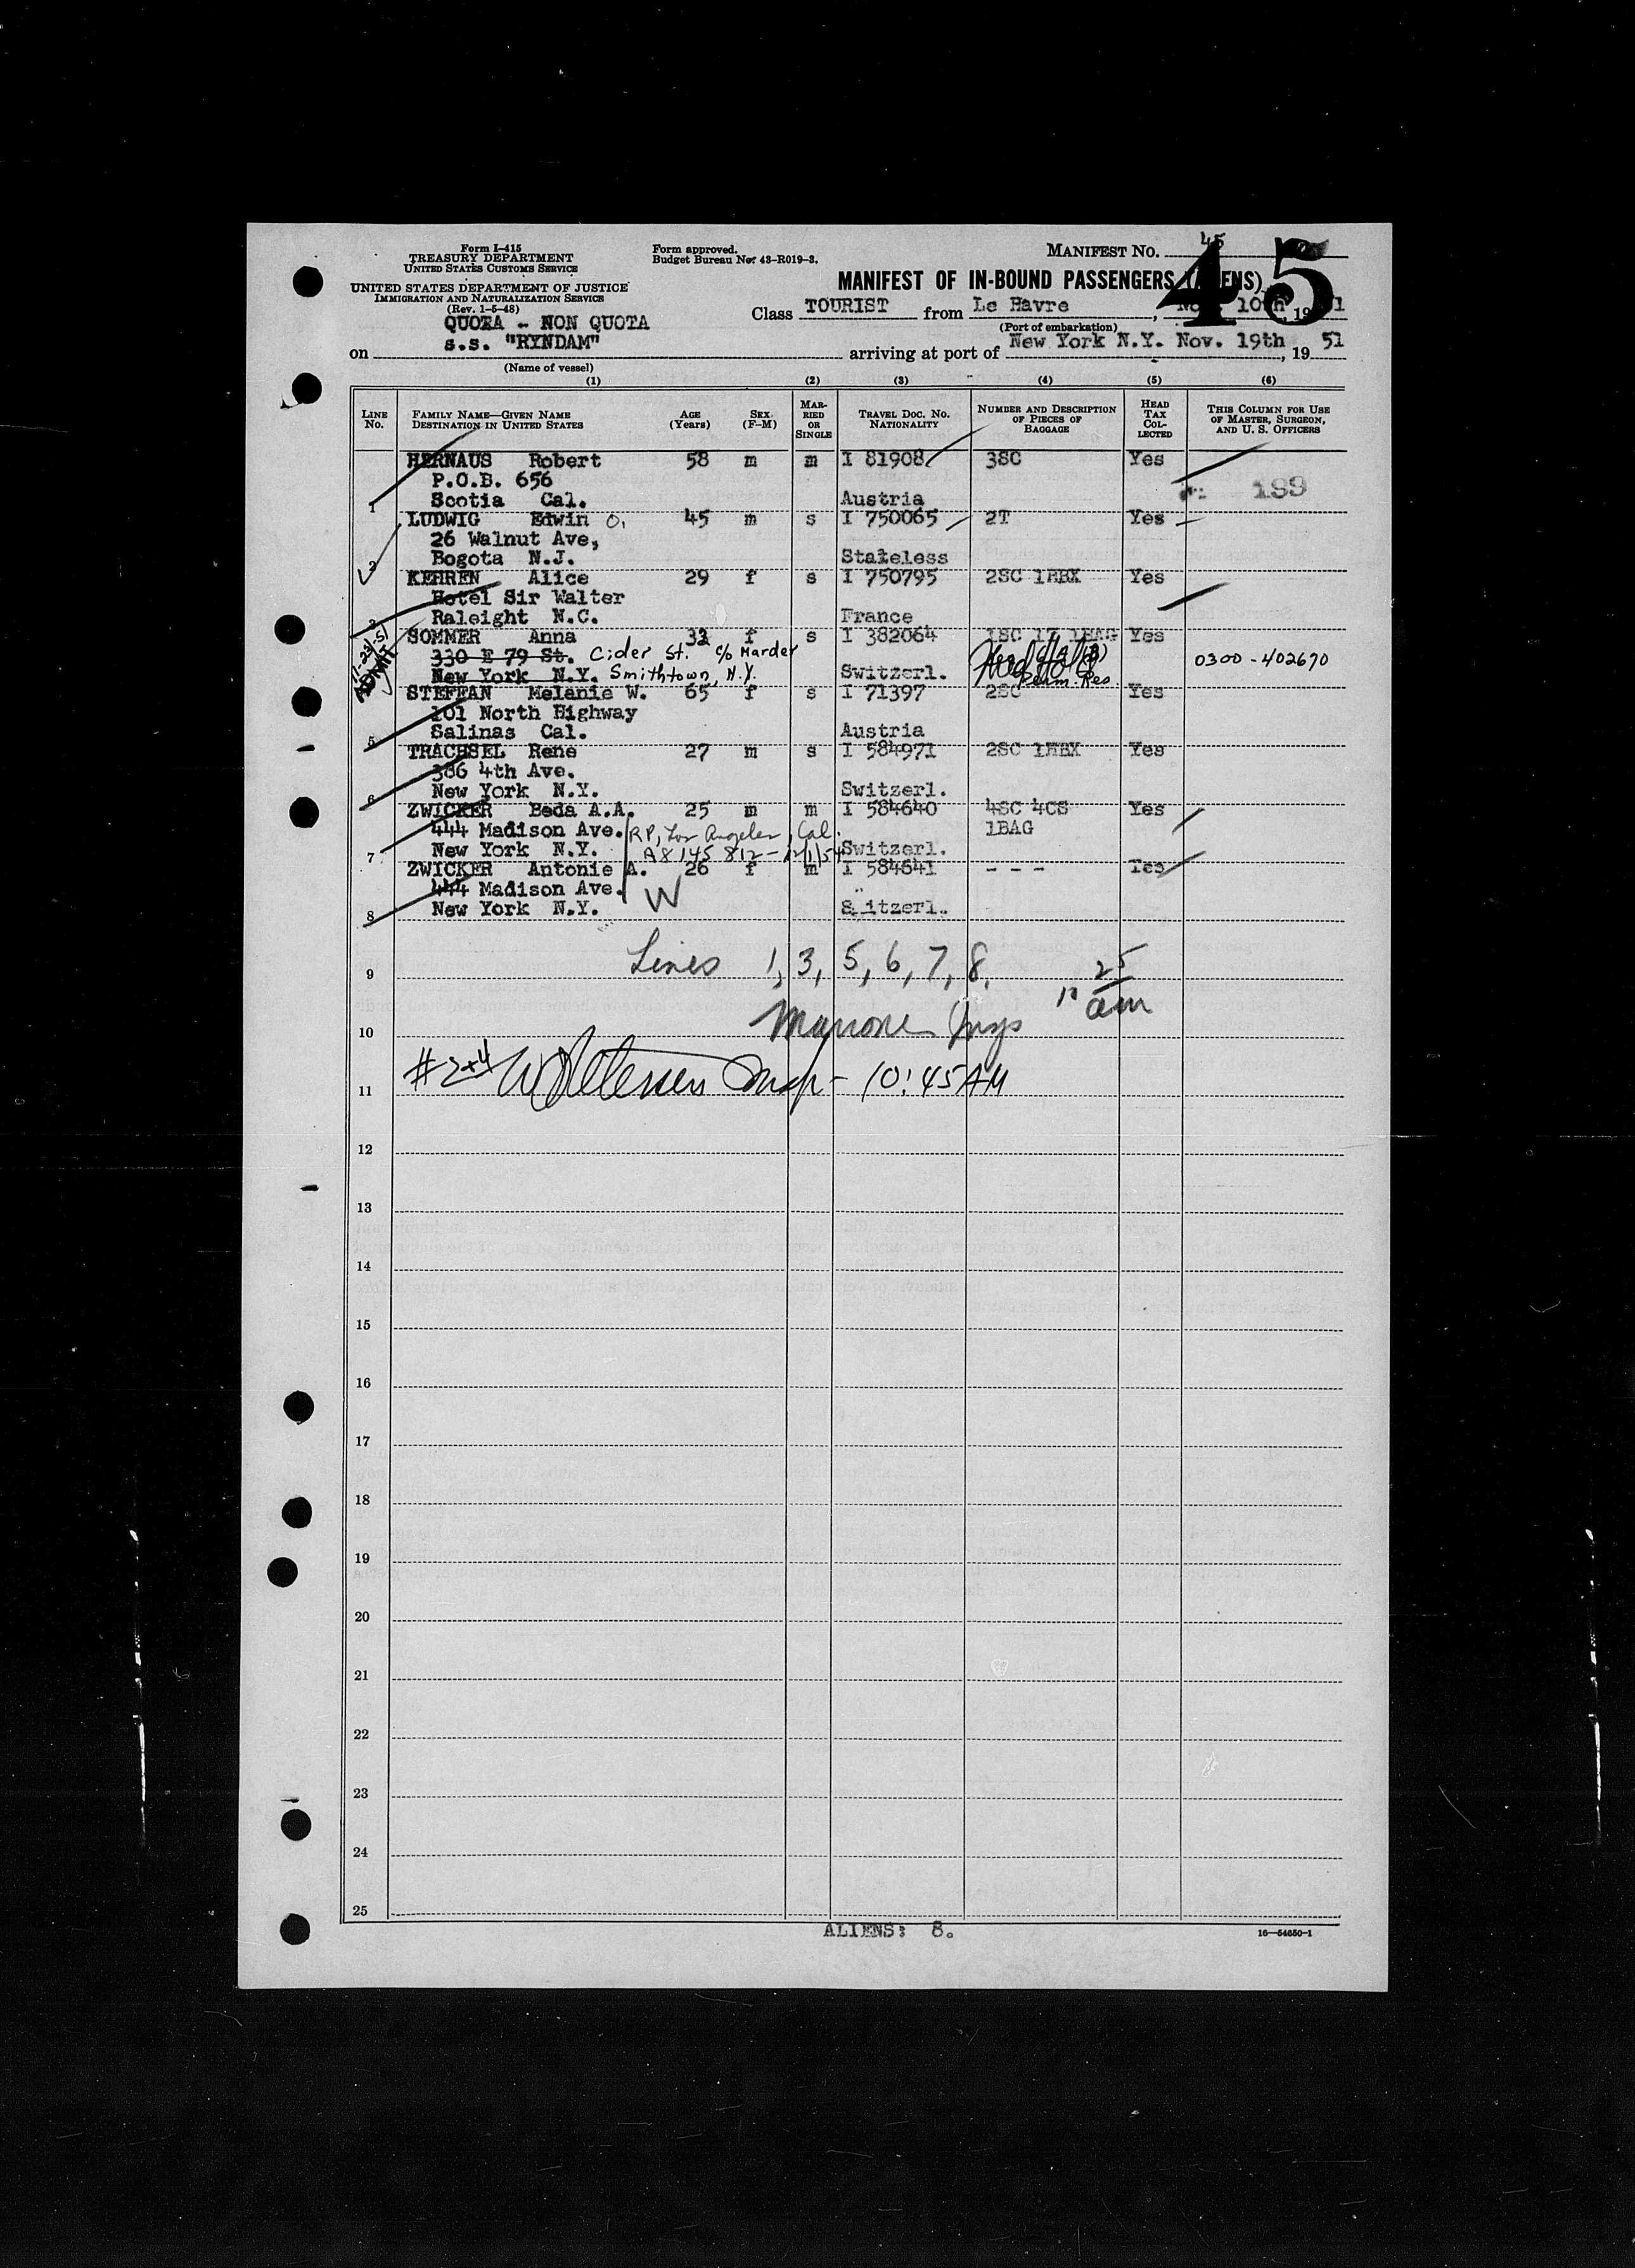 Form I-415
TREASURY DEPARTMENT
UNITED STATES CUSTOMS SERVICE
UNITED STATES DEPARTMENT OF JUSTICE
IMMIGRATION AND NATURALIZATION SERVICE
(Rev. 1-5-48)
QUOTA - NON QUOTA
Form approved.
Budget Bureau No. 43-R019-3.
MANIFEST NO. 45
45
MANIFEST OF IN-BOUND PASSENGERS (ALIENS)
Class TOURIST from Le Havre, 10th, 19 1
(Port of embarkation)
on s.s. "RYNDAM" arriving at port of New York N.Y. Nov. 19th, 19 51
(Name of vessel)
(1) (2) (3) (4) (5) (6)
LINE No. FAMILY NAME—GIVEN NAME DESTINATION IN UNITED STATES AGE (Years) SEX (F-M) MARRIED OR SINGLE TRAVEL DOC. NO. NATIONALITY NUMBER AND DESCRIPTION OF PIECES OF BAGGAGE HEAD TAX COLLECTED THIS COLUMN FOR USE OF MASTER, SURGEON, AND U. S. OFFICERS
HERNAUS Robert 58 m m I 81908 3SC Yes
P.O.B. 656
1 Scotia Cal. Austria 199
LUDWIG Edwin O. 45 m s I 750065 2T Yes
26 Walnut Ave,
2 Bogota N.J. Stateless
KEHREN Alice 29 f s I 750795 2SC 1HBX Yes
Hotel Sir Walter
3 Raleight N.C. France
SOMMER Anna 32 f s I 382064 1SC 1T 1BAG Yes
330 E 79 St. Cider St. c/o Marder
New York N.Y. Smithtown, N.Y. Switzerl. Perm. Res. 0300-402670
ADMIT 11-23-51
STEFFAN Melanie W. 65 f s I 71397 2SC Yes
101 North Highway
5 Salinas Cal. Austria
TRACHSEL Rene 27 m s I 584971 2SC 1HBX Yes
386 4th Ave.
6 New York N.Y. Switzerl.
ZWICKER Beda A.A. 25 m m I 584640 4SC 4CS Yes
444 Madison Ave. RP, Los Angeles, Cal. 1BAG
7 New York N.Y. A8 145 812 - 12/1/54 Switzerl.
ZWICKER Antonie A. 26 f m I 584641 - - - Yes
444 Madison Ave. W
8 New York N.Y. Switzerl.
9 Lines 1, 3, 5, 6, 7, 8, 10 25 am
10 Marrone Insp
11 #2+4 W Petersen Insp - 10:45 AM
12
13
14
15
16
17
18
19
20
21
22
23
24
25
ALIENS: 8.
16—54650-1